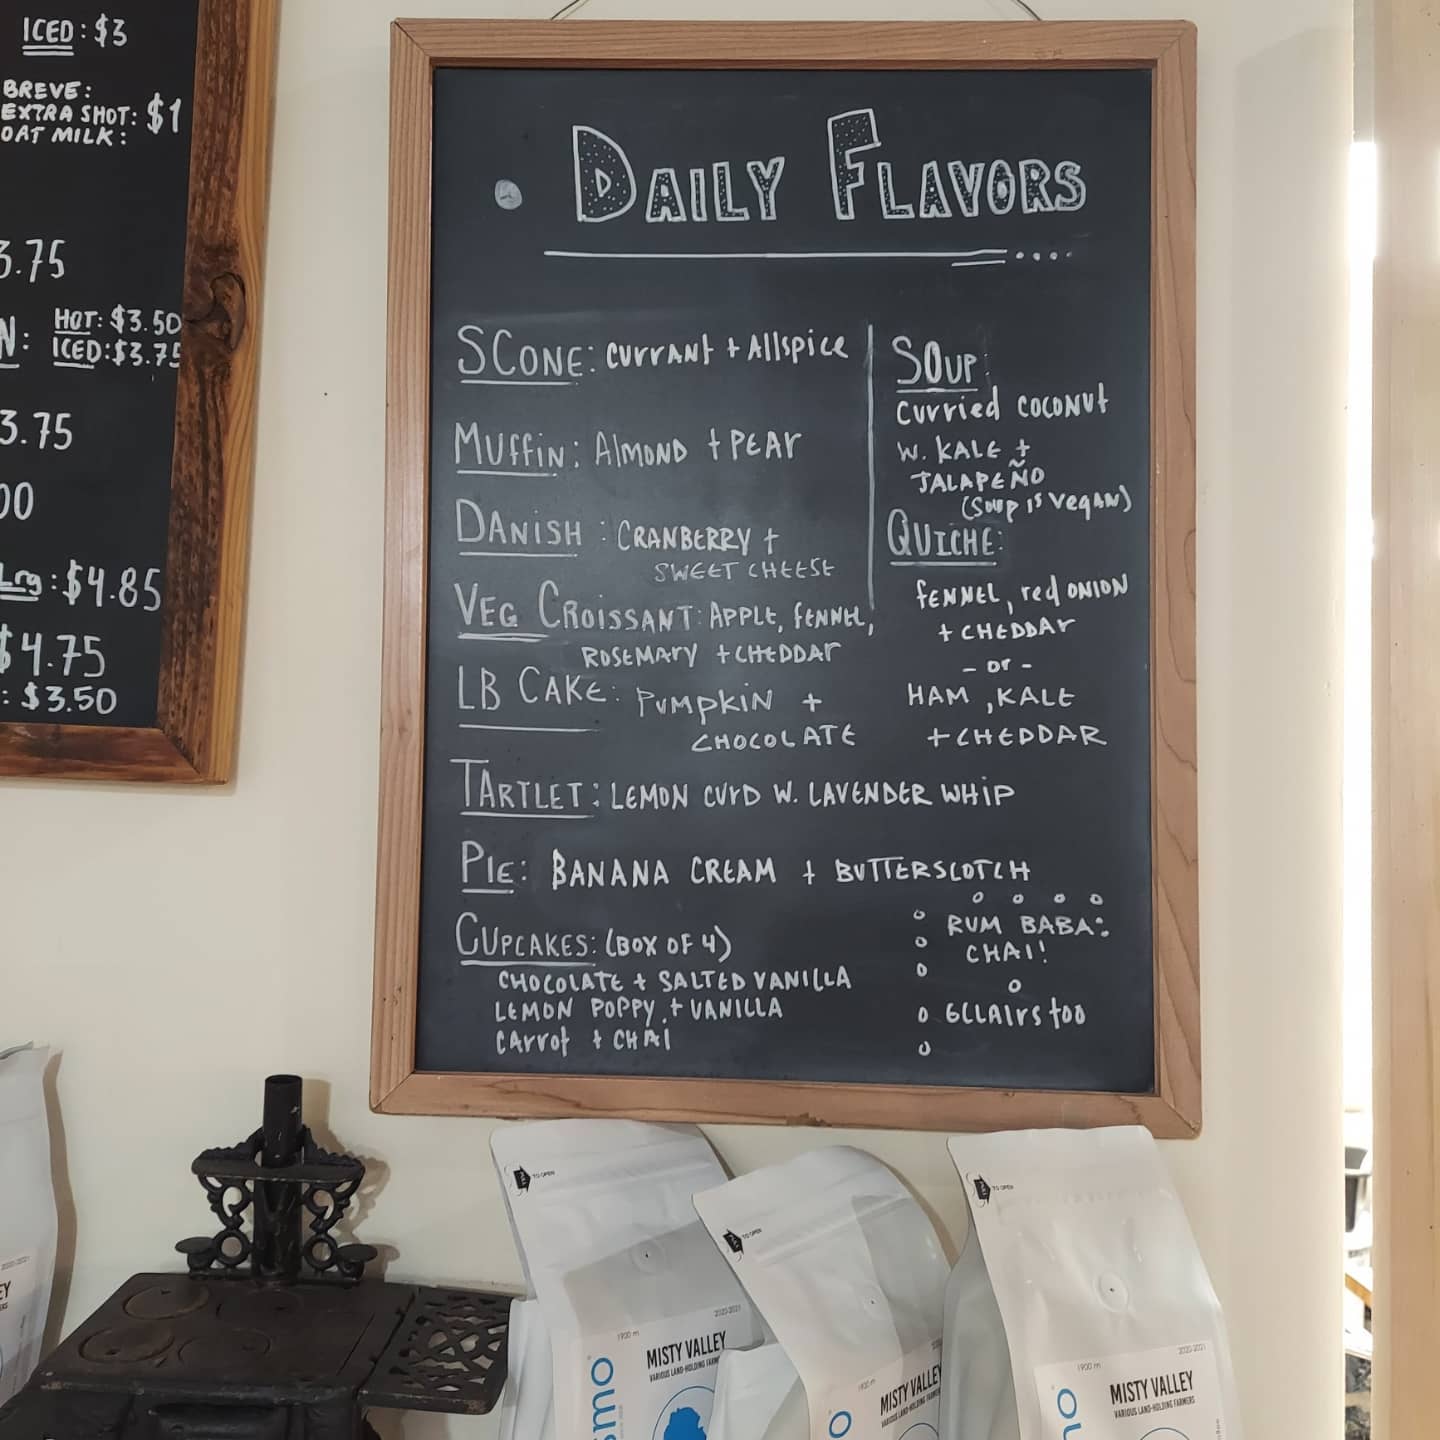 ICED: $3
BREVE:
EXTRA SHOT: $1
OAT MILK:
3.75
HOT: $3.50
N: ICED: $3.75
3.75
00
Lrg: $4.85
$4.75
: $3.50
DAILY FLAVORS
SCONE: CURRANT + AllSPICE
MUFFIN: AlMOND + PEAR
DANISH: CRANBERRY +
SWEET CHEESE
VEG CROISSANT: APPLE, FENNEL,
ROSEMARY + CHEDDAR
LB CAKE: PUMPKIN +
CHOCOLATE
TARTLET: LEMON CURD W. LAVENDER WHIP
PIE: BANANA CREAM + BUTTERSCOTCH
CUPCAKES: (BOX OF 4)
CHOCOLATE + SALTED VANILLA
LEMON POPPY + VANILLA
CARROT + CHAI
SOUP:
CURRIED COCONUT
W. KALE +
JALAPEÑO
(SOUP IS VEGAN)
QUICHE:
FENNEL, red ONION
+ CHEDDAR
- or -
HAM, KALE
+ CHEDDAR
RUM BABA:
CHAI!
ECLAIRS TOO
TO OPEN
TO OPEN
TO OPEN
2020-2021
1900 m
MISTY VALLEY
VARIOUS LAND-HOLDING FARM
smo
1900 m
MISTY VALLEY
VARIOUS LAND-HOLDING FARMERS
2020-2021
1900 m
MISTY VALLEY
VARIOUS LAND-HOLDING FARMERS